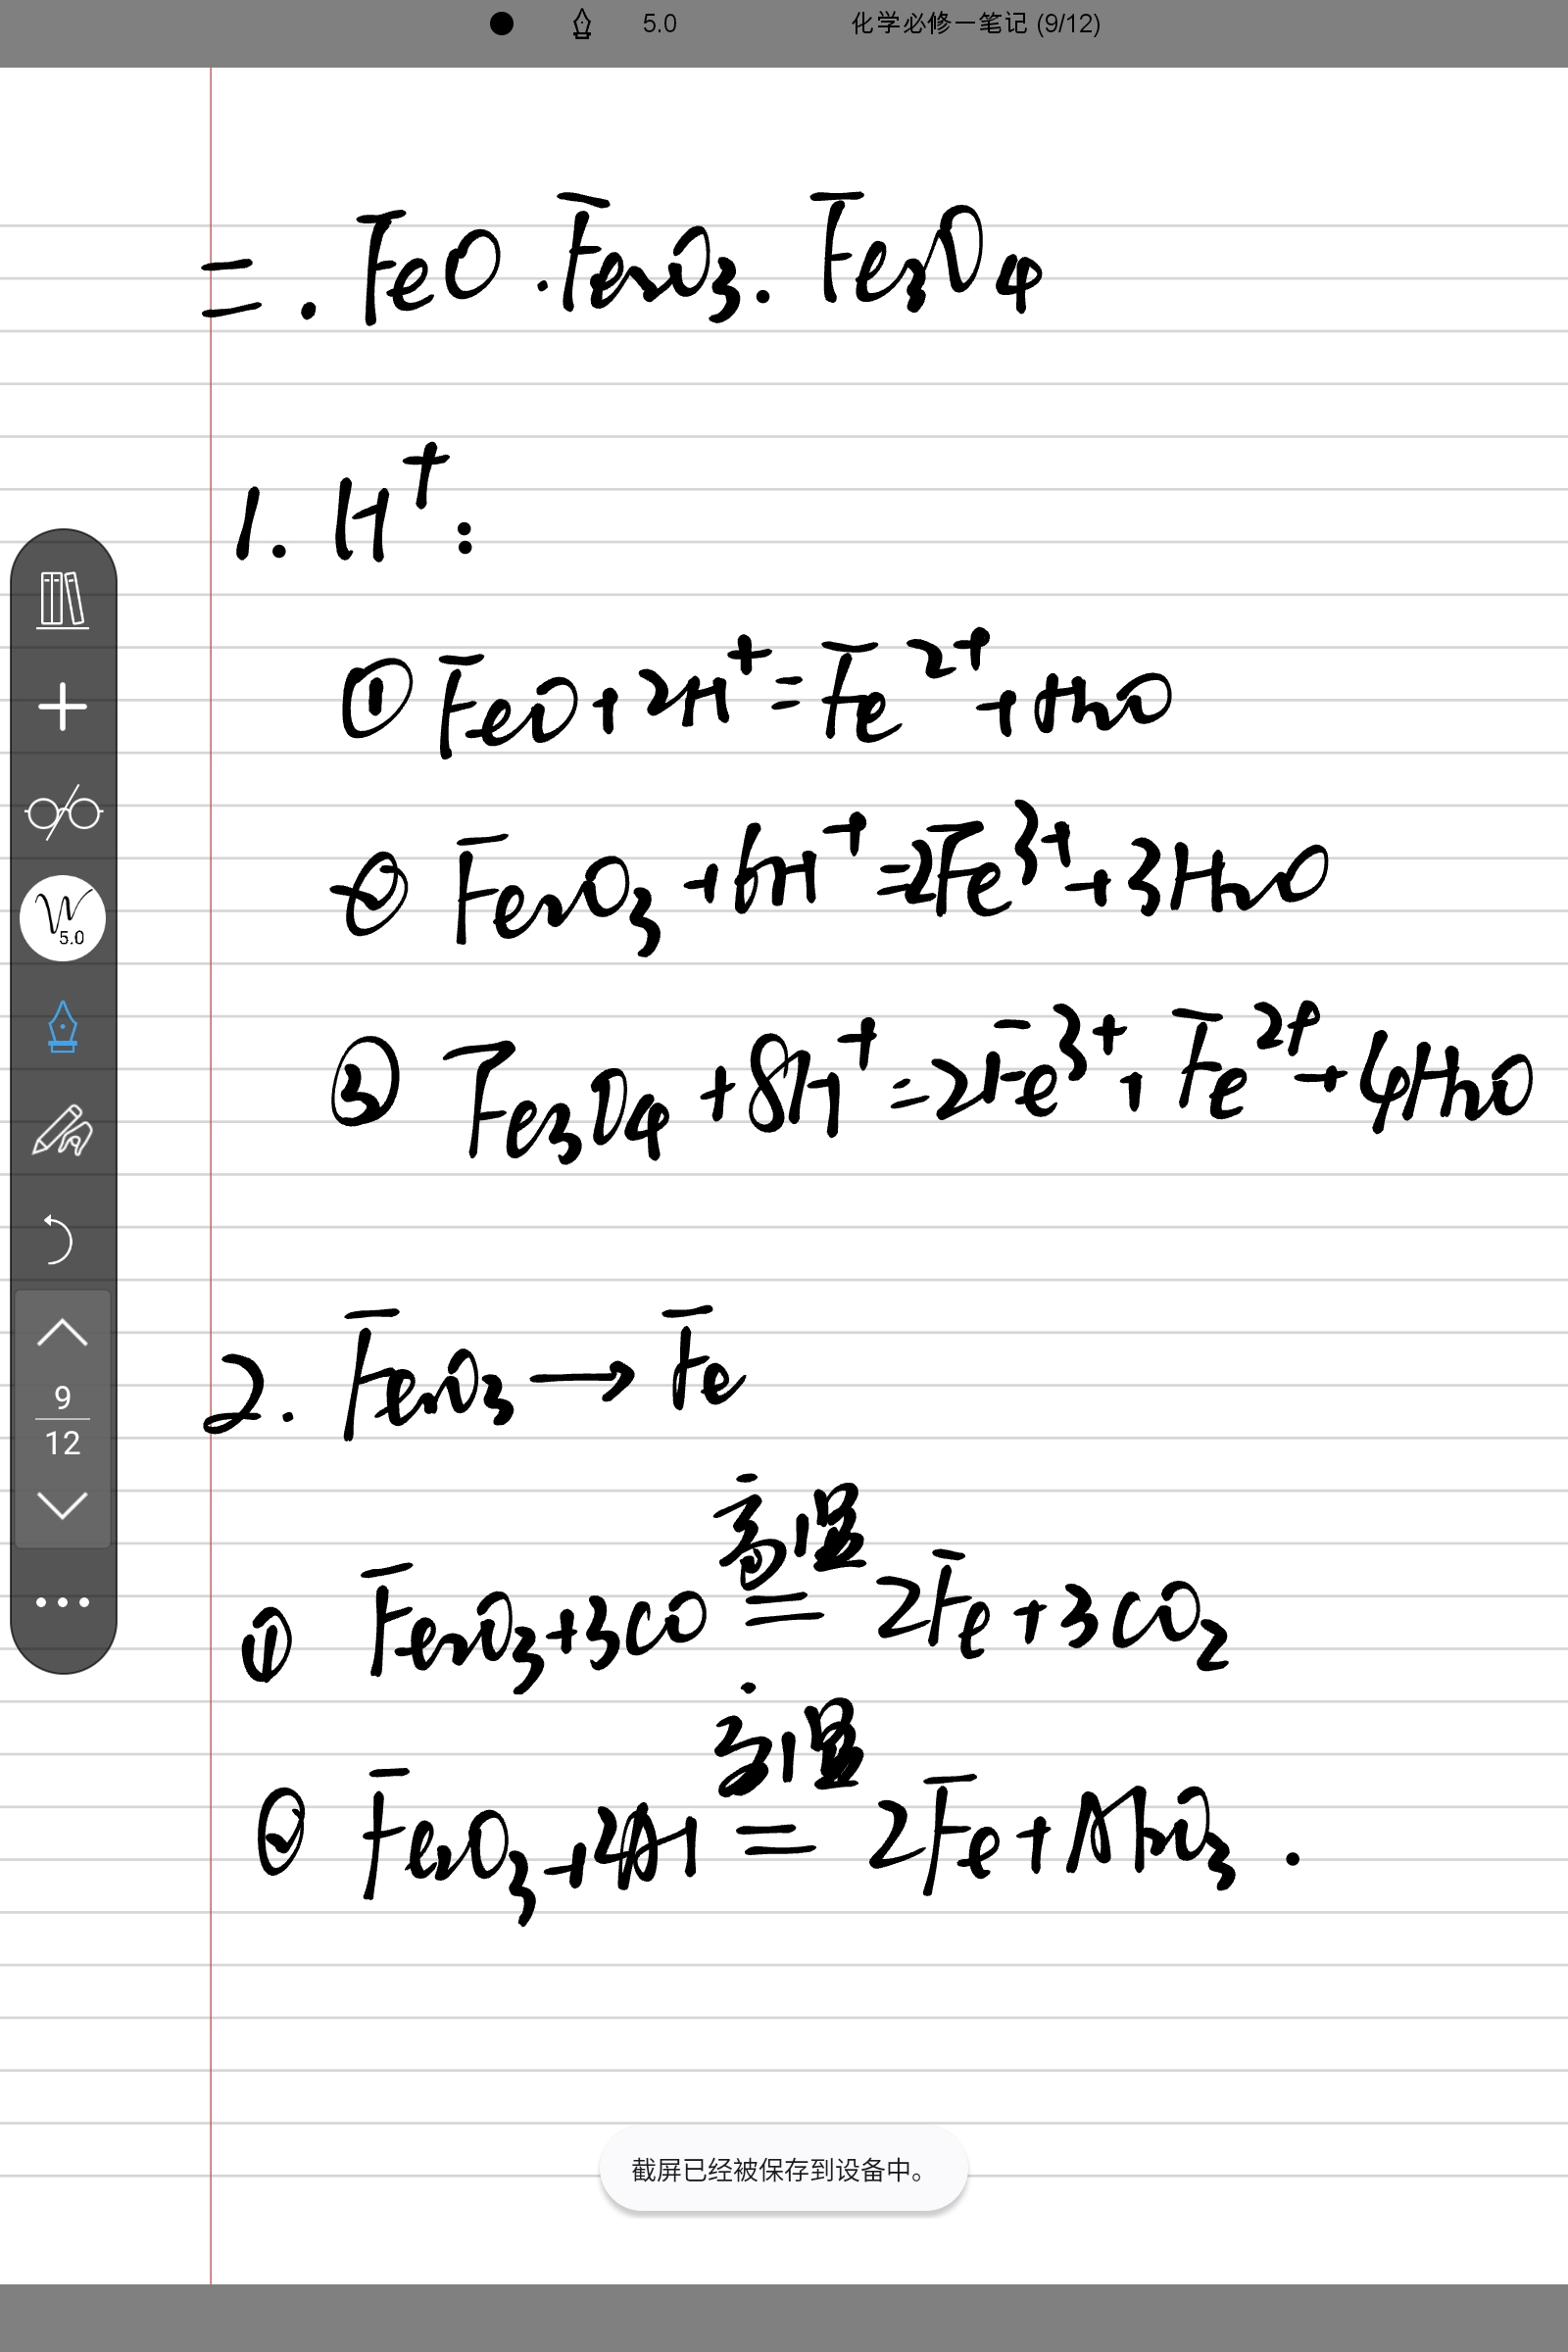 5.0 化学必修一笔记 (9/12)
二. FeO . Fe₂O₃ . Fe₃O₄
1. H⁺:
① FeO+2H⁺=Fe²⁺+H₂O
② Fe₂O₃+6H⁺=2Fe³⁺+3H₂O
③ Fe₃O₄+8H⁺=2Fe³⁺+Fe²⁺+4H₂O
5.0
9
12
2. Fe₂O₃→Fe
高温
① Fe₂O₃+3CO = 2Fe+3CO₂
高温
② Fe₂O₃+2Al = 2Fe+Al₂O₃.
截屏已经被保存到设备中。